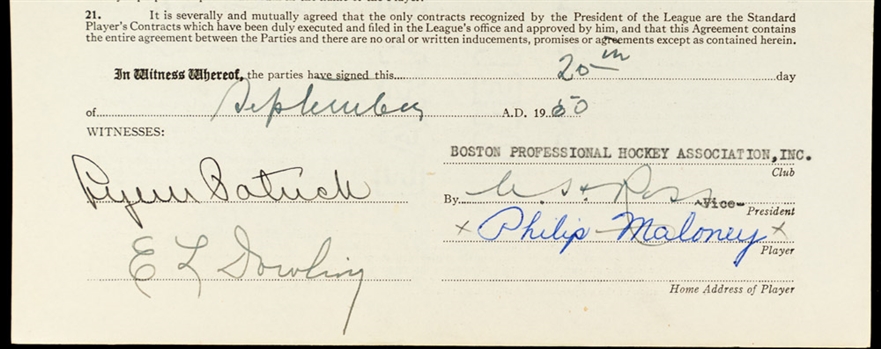 21. It is severally and mutually agreed that the only contracts recognized by the President of the League are the Standard
Player's Contracts which have been duly executed and filed in the League's office and approved by him, and that this Agreement contains
the entire agreement between the Parties and there are no oral or written inducements, promises or agreements except as contained herein.
In Witness Whereof, the parties have signed this 20th day
of September A.D. 1950
WITNESSES:
BOSTON PROFESSIONAL HOCKEY ASSOCIATION, INC.
Club
Lynn Patrick
By Ross
-Vice-
President
x Philip Maloney x
Player
E L Dowling
Home Address of Player